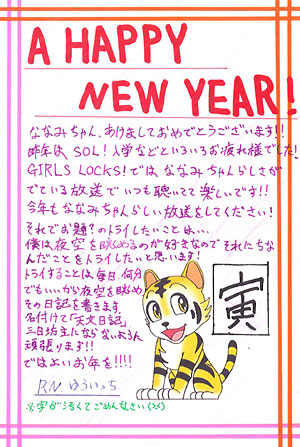 A HAPPY
NEW YEAR!
ななみちゃん、あけましておめでとうございます!!
昨年は、SOL!入学などといろいろお疲れ様でした!
GIRLS LOCKS!では ななみちゃんらしさが
でている放送で いつも聴いてて楽しいです!!
今年もななみちゃんらしい放送をしてください!
それでお題?のトライしたいことは…
僕は夜空を眺めるのが好きなので それにちな
んだことをトライしたいと思います!
トライすることは、毎日、何分
でもいいから夜空を眺め
その日記を書きます。
名付けて「天文日記」
三日坊主にならないよう
頑張ります!!
ではよいお年を!!!!
RN ゆういっち
※字が汚くてごめんなさい(>_<)
寅